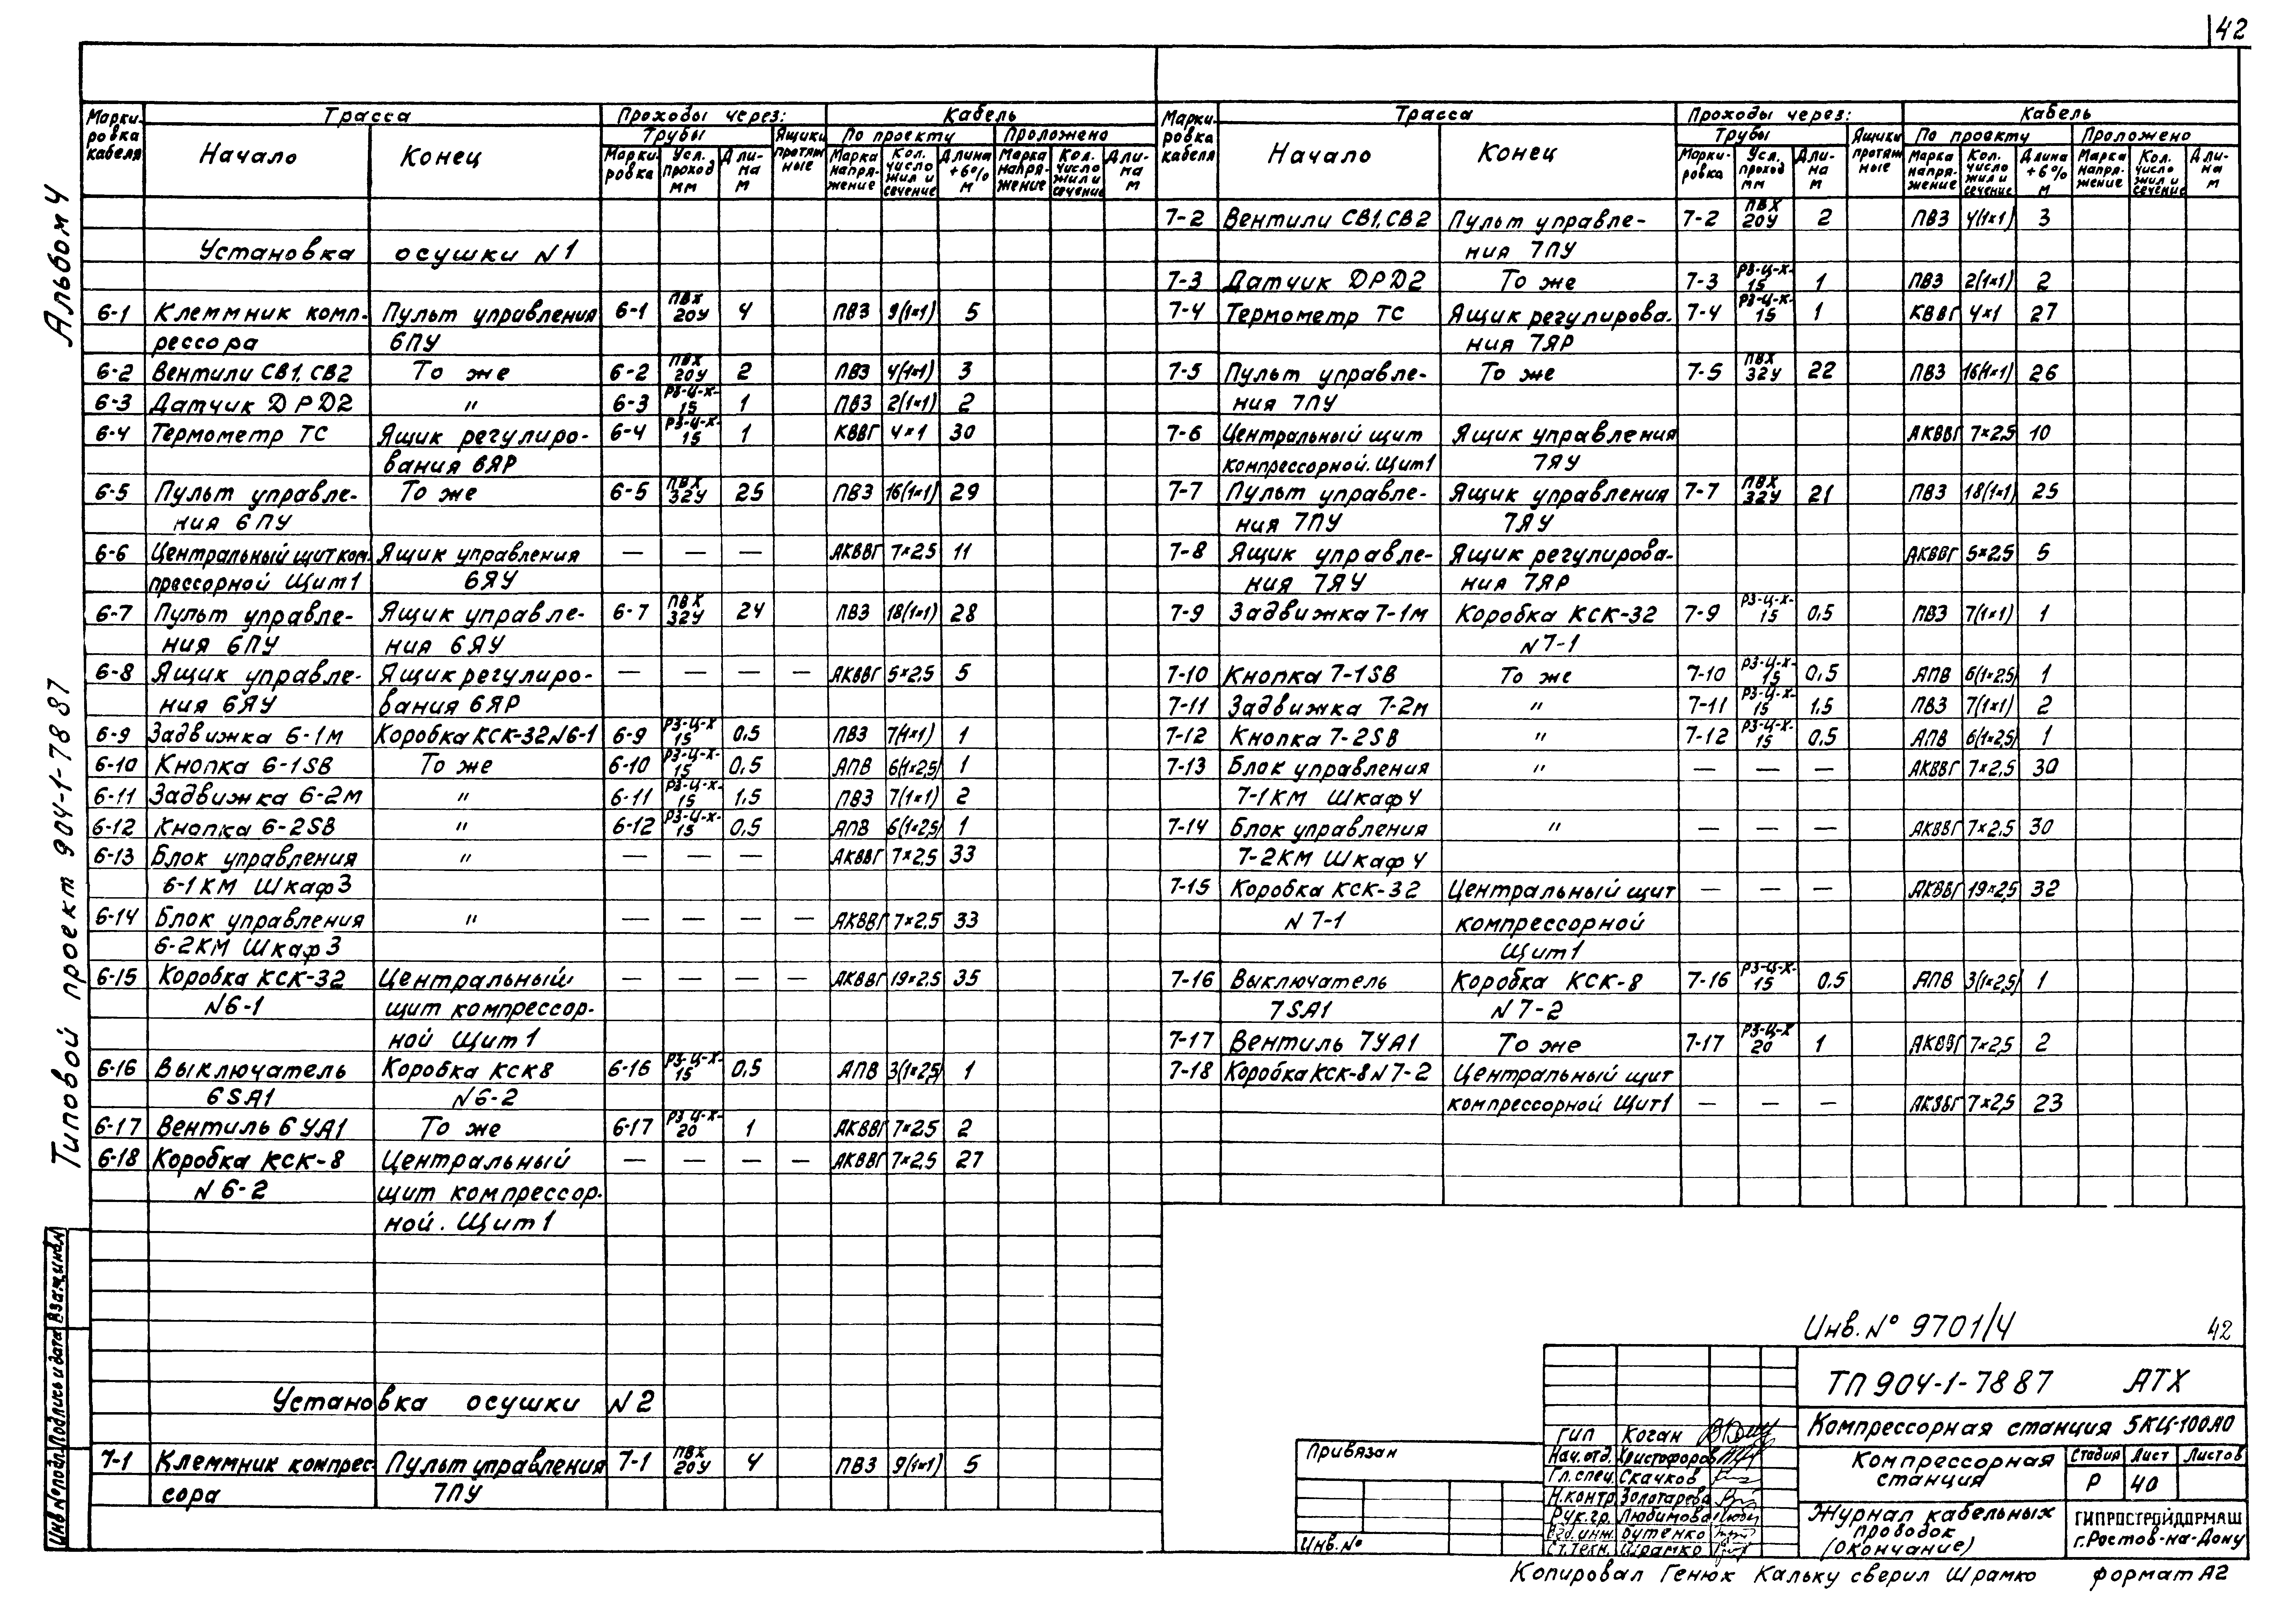 42
Альбом 4
Типовой проект 904-1-78 87
Марки-ровка кабеля | Трасса | Проходы через: | Кабель
Трубы | Ящики протяж ные | По проекту | Проложено
Начало | Конец | Марки-ровка | Усл. проход мм | Дли-на м | Марка напря-жение | Кол. число жил и сечение | Длина +6% м | Марка напря-жение | Кол. число жил и сечение | Дли-на м
Установка осушки N1
6-1 Клеммник комп- Пульт управления 6-1 ПВХ 20У 4 ПВ3 9(1×1) 5
рессора 6ПУ
6-2 Вентили СВ1, СВ2 То же 6-2 ПВХ 20У 2 ПВ3 4(1×1) 3
6-3 Датчик DPD2 " 6-3 РЗ-Ц-Х-15 1 ПВ3 2(1×1) 2
6-4 Термометр ТС Ящик регулиро- 6-4 РЗ-Ц-Х-15 1 КВВГ 4×1 30
вания 6ЯР
6-5 Пульт управле- То же 6-5 ПВХ 32У 25 ПВ3 16(1×1) 29
ния 6ПУ
6-6 Центральный щит ком- Ящик управления — — — АКВВГ 7×2,5 11
прессорной Щит1 6ЯУ
6-7 Пульт управле- Ящик управле- 6-7 ПВХ 32У 24 ПВ3 18(1×1) 28
ния 6ПУ ния 6ЯУ
6-8 Ящик управле- Ящик регулиро- — — — — АКВВГ 5×2,5 5
ния 6ЯУ вания 6ЯР
6-9 Задвижка 6-1м Коробка КСК-32 N6-1 6-9 РЗ-Ц-Х 15 0,5 ПВ3 7(1×1) 1
6-10 Кнопка 6-1SB То же 6-10 РЗ-Ц-Х-15 0,5 АПВ 6(1×2,5) 1
6-11 Задвижка 6-2м " 6-11 РЗ-Ц-Х-15 1,5 ПВ3 7(1×1) 2
6-12 Кнопка 6-2SB " 6-12 РЗ-Ц-Х-15 0,5 АПВ 6(1×2,5) 1
6-13 Блок управления " — — — АКВВГ 7×2,5 33
6-1КМ Шкаф3
6-14 Блок управления " — — — — АКВВГ 7×2,5 33
6-2КМ Шкаф3
6-15 Коробка КСК-32 Центральный — — — — АКВВГ 19×2,5 35
N6-1 щит компрессор-
ной Щит1
6-16 Выключатель Коробка КСК8 6-16 РЗ-Ц-Х-15 0,5 АПВ 3(1×2,5) 1
6SA1 N6-2
6-17 Вентиль 6УА1 То же 6-17 РЗ-Ц-Х-20 1 АКВВГ 7×2,5 2
6-18 Коробка КСК-8 Центральный — — — — АКВВГ 7×2,5 27
N 6-2 щит компрессор-
ной. Щит1
Установка осушки N2
7-1 Клеммник компрес- Пульт управления 7-1 ПВХ 20У 4 ПВ3 9(1×1) 5
сора 7ПУ
Марки-ровка кабеля | Трасса | Проходы через: | Кабель
Трубы | Ящики протяж ные | По проекту | Проложено
Начало | Конец | Марки-ровка | Усл. проход мм | Дли-на м | Марка напря-жение | Кол. число жил и сечение | Длина +6% м | Марка напря-жение | Кол. число жил и сечение | Дли-на м
7-2 Вентили СВ1, СВ2 Пульт управле- 7-2 ПВХ 20У 2 ПВ3 4(1×1) 3
ния 7ПУ
7-3 Датчик DPD2 То же 7-3 РЗ-Ц-Х-15 1 ПВ3 2(1×1) 2
7-4 Термометр ТС Ящик регулирова- 7-4 РЗ-Ц-Х-15 1 КВВГ 4×1 27
ния 7ЯР
7-5 Пульт управле- То же 7-5 ПВХ 32У 22 ПВ3 16(1×1) 26
ния 7ПУ
7-6 Центральный щит Ящик управления АКВВГ 7×2,5 10
компрессорной. Щит1 7ЯУ
7-7 Пульт управле- Ящик управления 7-7 ПВХ 32У 21 ПВ3 18(1×1) 25
ния 7ПУ 7ЯУ
7-8 Ящик управле- Ящик регулирова- АКВВГ 5×2,5 5
ния 7ЯУ ния 7ЯР
7-9 Задвижка 7-1м Коробка КСК-32 7-9 РЗ-Ц-Х-15 0,5 ПВ3 7(1×1) 1
N7-1
7-10 Кнопка 7-1SB То же 7-10 РЗ-Ц-Х-15 0,5 АПВ 6(1×2,5) 1
7-11 Задвижка 7-2м " 7-11 РЗ-Ц-Х-15 1,5 ПВ3 7(1×1) 2
7-12 Кнопка 7-2SB " 7-12 РЗ-Ц-Х-15 0,5 АПВ 6(1×2,5) 1
7-13 Блок управления " — — — АКВВГ 7×2,5 30
7-1КМ Шкаф4
7-14 Блок управления " — — — АКВВГ 7×2,5 30
7-2КМ Шкаф4
7-15 Коробка КСК-32 Центральный щит — — — АКВВГ 19×2,5 32
N 7-1 компрессорной
Щит1
7-16 Выключатель Коробка КСК-8 7-16 РЗ-Ц-Х-15 0,5 АПВ 3(1×2,5) 1
7SA1 N 7-2
7-17 Вентиль 7УА1 То же 7-17 РЗ-Ц-Х 20 1 АКВВГ 7×2,5 2
7-18 Коробка КСК-8 N 7-2 Центральный щит
компрессорной Щит1 — — — АКВВГ 7×2,5 23
Инв. N° 9701/4 42
ТП 904-1-78 87 АТХ
Компрессорная станция 5КЦ-100А0
Компрессорная станция
Стадия Лист Листов
Р 40
Журнал кабельных проводок (окончание)
ГИПРОСТРОЙДОРМАШ
г. Ростов-на-Дону
ГИП Коган
Нач. отд. Христофоров
Гл. спец. Скачков
Н. контр. Золотарева
Рук. гр. Любимова
Вед. инж. Бутенко
Ст. техн. Шрамко
Привязан
Инв. N°
Инв. N подл. Подпись и дата Взам. инв. N
Копировал Генюх Кальку сверил Шрамко формат А2